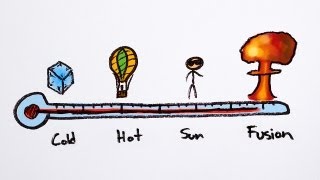 Cold Hot Sun Fusion